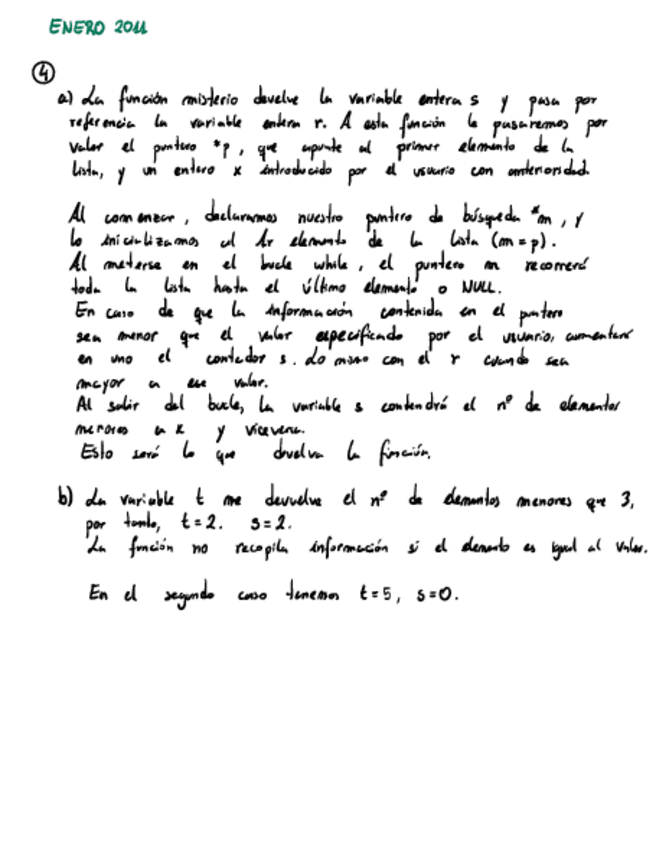 ENERO 2011
4
a) La función misterio devuelve la variable entera s y pasa por
referencia la variable entera r. A esta función le pasaremos por
valor el puntero *p, que apunte al primer elemento de la
lista, y un entero x introducido por el usuario con anterioridad.
Al comenzar, declaramos nuestro puntero de búsqueda *m, y
lo inicializamos al 1r elemento de la lista (m=p).
Al meterse en el bucle while, el puntero m recorrerá
toda la lista hasta el último elemento o NULL.
En caso de que la información contenida en el puntero
sea menor que el valor especificado por el usuario, aumentará
en uno el contador s. Lo mismo con el r cuando sea
mayor a ese valor.
Al salir del bucle, la variable s contendrá el nº de elementos
menores a x y viceversa.
Esto será lo que devolva la función.
b) La variable t me devuelve el nº de elementos menores que 3,
por tanto, t=2. s=2.
La función no recopila información si el elemento es igual al valor.
En el segundo caso tenemos t=5, s=0.